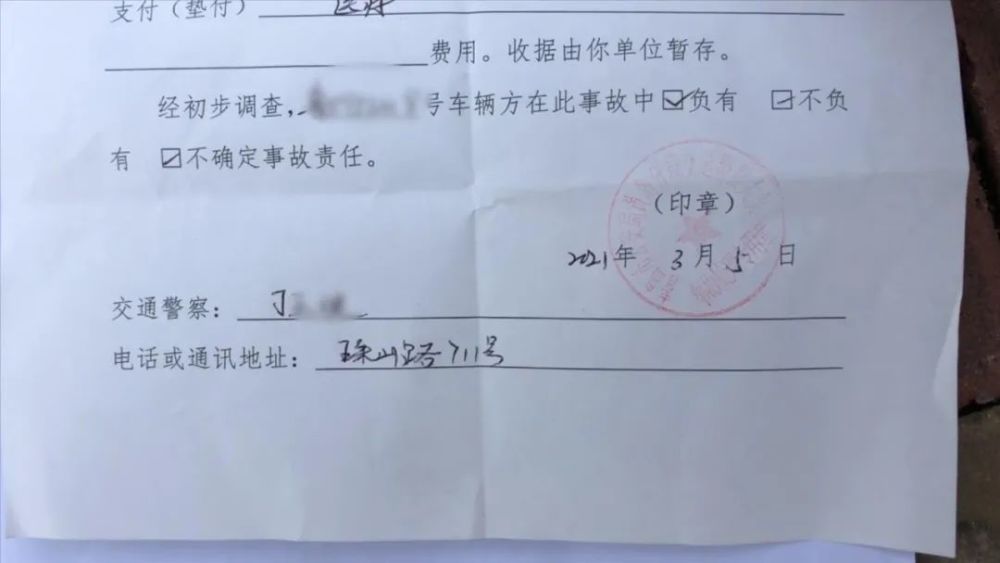 支付（垫付）医疗
费用。收据由你单位暂存。
经初步调查，号车辆方在此事故中☑负有 ☐不负
有 ☐不确定事故责任。
（印章）
2021年 3月 5日
交通警察：丁
电话或通讯地址：珠山路711号